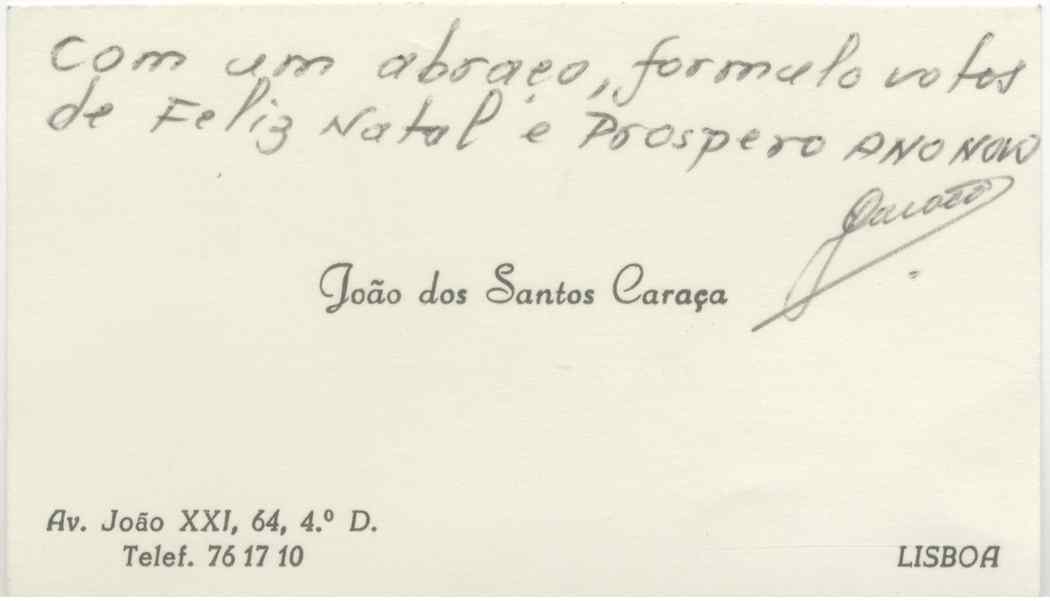 Com um abraço, formulo votos
de Feliz Natal e Prospero ANO NOVO
João dos Santos Caraça
Av. João XXI, 64, 4.º D.
Telef. 76 17 10
LISBOA